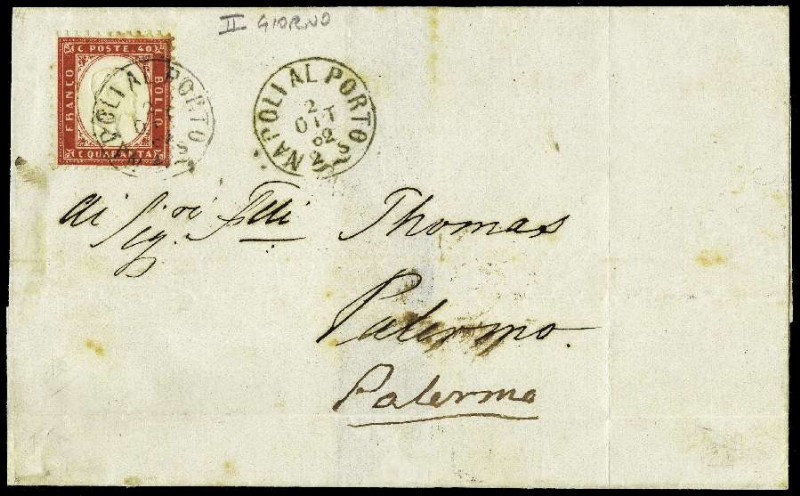 II GIORNO
C. POSTE. 40
FRANCO
BOLLO
C QUARANTA
NAPOLI AL PORTO
NAPOLI AL PORTO
2
OTT
62
2 S
ai Sig.ri Flli Thomas
Palermo.
Palermo